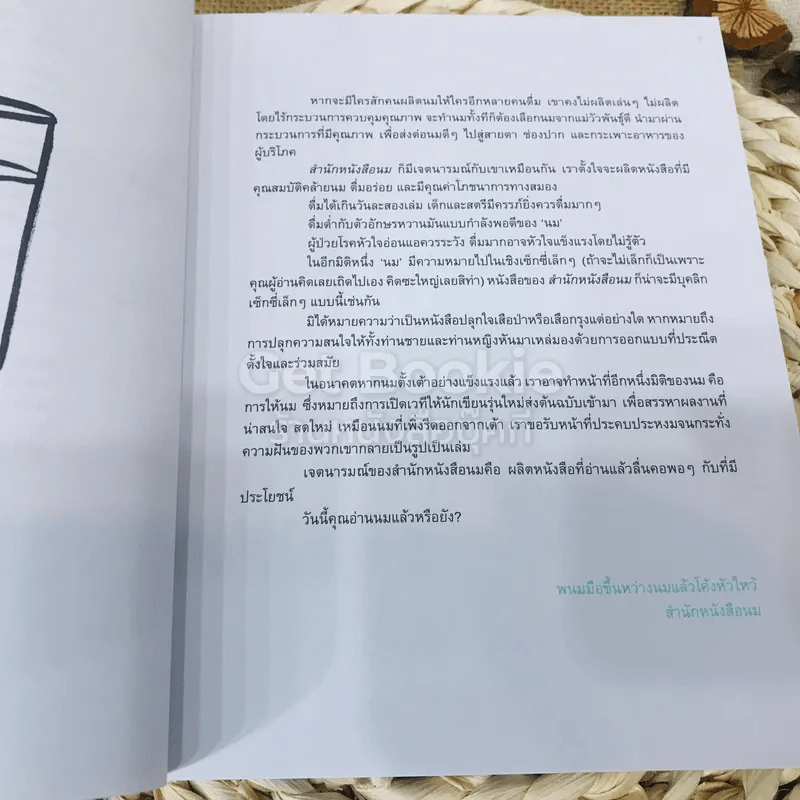 หากจะมีใครสักคนผลิตนมให้ใครอีกหลายคนดื่ม เขาคงไม่ผลิตเล่นๆ ไม่ผลิต
โดยไร้กระบวนการควบคุมคุณภาพ จะทำนมทั้งทีก็ต้องเลือกนมจากแม่วัวพันธุ์ดี นำมาผ่าน
กระบวนการที่มีคุณภาพ เพื่อส่งต่อนมดีๆ ไปสู่สายตา ช่องปาก และกระเพาะอาหารของ
ผู้บริโภค
สำนักหนังสือนม ก็มีเจตนารมณ์กับเขาเหมือนกัน เราตั้งใจจะผลิตหนังสือที่มี
คุณสมบัติคล้ายนม ดื่มอร่อย และมีคุณค่าโภชนาการทางสมอง
ดื่มได้เกินวันละสองเล่ม เด็กและสตรีมีครรภ์ยิ่งควรดื่มมากๆ
ดื่มด่ำกับตัวอักษรหวานมันแบบกำลังพอดีของ 'นม'
ผู้ป่วยโรคหัวใจอ่อนแอควรระวัง ดื่มมากอาจหัวใจแข็งแรงโดยไม่รู้ตัว
ในอีกมิติหนึ่ง 'นม' มีความหมายไปในเชิงเซ็กซี่เล็กๆ (ถ้าจะไม่เล็กก็เป็นเพราะ
คุณผู้อ่านคิดเลยเถิดไปเอง คิดซะใหญ่เลยสิท่า) หนังสือของ สำนักหนังสือนม ก็น่าจะมีบุคลิก
เซ็กซี่เล็กๆ แบบนี้เช่นกัน
มิได้หมายความว่าเป็นหนังสือปลุกใจเสือป่าหรือเสือกรุงแต่อย่างใด หากหมายถึง
การปลุกความสนใจให้ทั้งท่านชายและท่านหญิงหันมาเหล่มองด้วยการออกแบบที่ประณีต
ตั้งใจและร่วมสมัย
Get Bookie
ในอนาคตหากนมตั้งเต้าอย่างแข็งแรงแล้ว เราอาจทำหน้าที่อีกหนึ่งมิติของนม คือ
การให้นม ซึ่งหมายถึงการเปิดเวทีให้นักเขียนรุ่นใหม่ส่งต้นฉบับเข้ามา เพื่อสรรหาผลงานที่
น่าสนใจ สดใหม่ เหมือนนมที่เพิ่งรีดออกจากเต้า เราขอรับหน้าที่ประคบประหงมจนกระทั่ง
ร้านหนังสือบุ๊คกี้
ความฝันของพวกเขากลายเป็นรูปเป็นเล่ม
เจตนารมณ์ของสำนักหนังสือนมคือ ผลิตหนังสือที่อ่านแล้วลื่นคอพอๆ กับที่มี
ประโยชน์
วันนี้คุณอ่านนมแล้วหรือยัง?
พนมมือขึ้นหว่างนมแล้วโค้งหัวไหว้
สำนักหนังสือนม